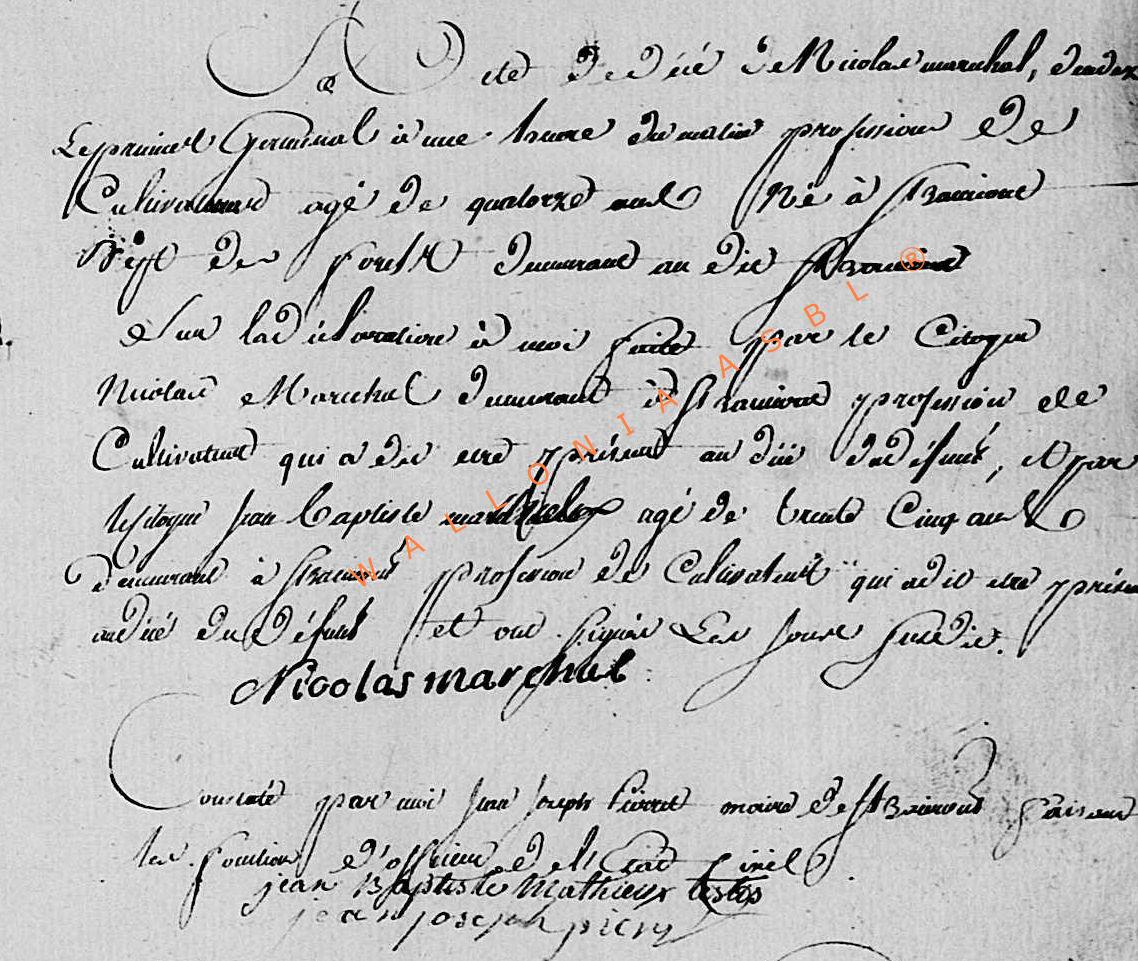 Acte de décé de Nicolas marechal, décédé
Le premier Germinal à une heure du matin profession de
Cultivateur agé de quatorze ans Né à Straimont
Dept des forêts demeurant au dit Straimont
Sur la déclaration à moi faite par le Citoyen
Nicolas Marechal demeurant à Straimont profession de
Cultivateur qui a dit etre présent au décé du défunt, et par
le Citoyen jean baptiste mathieux agé de trente Cinq ans
demeurant à Straimont profession de Cultivateur qui a dit etre présent
au décé du Défunt et ont signés Les jours susdit.
Nicolas marchal
Constaté par moi jean joseph Pierret maire de Straimont faisant
les fonctions d'officier de l'Etat Civil
jean Baptiste Mathieux
jean joseph piery
WALLONIA ASBL ®